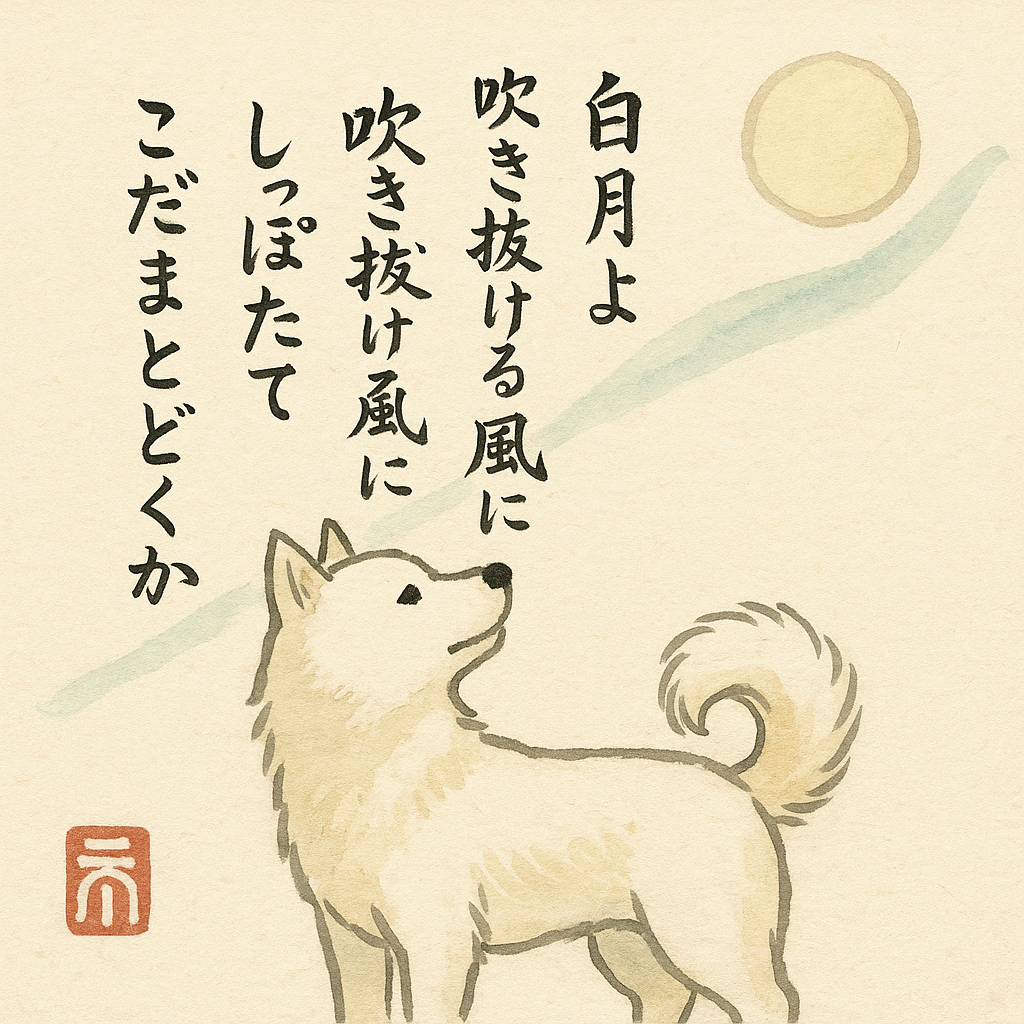 白月よ
吹き抜ける風に
吹き抜け風に
しっぽたて
こだまとどくか